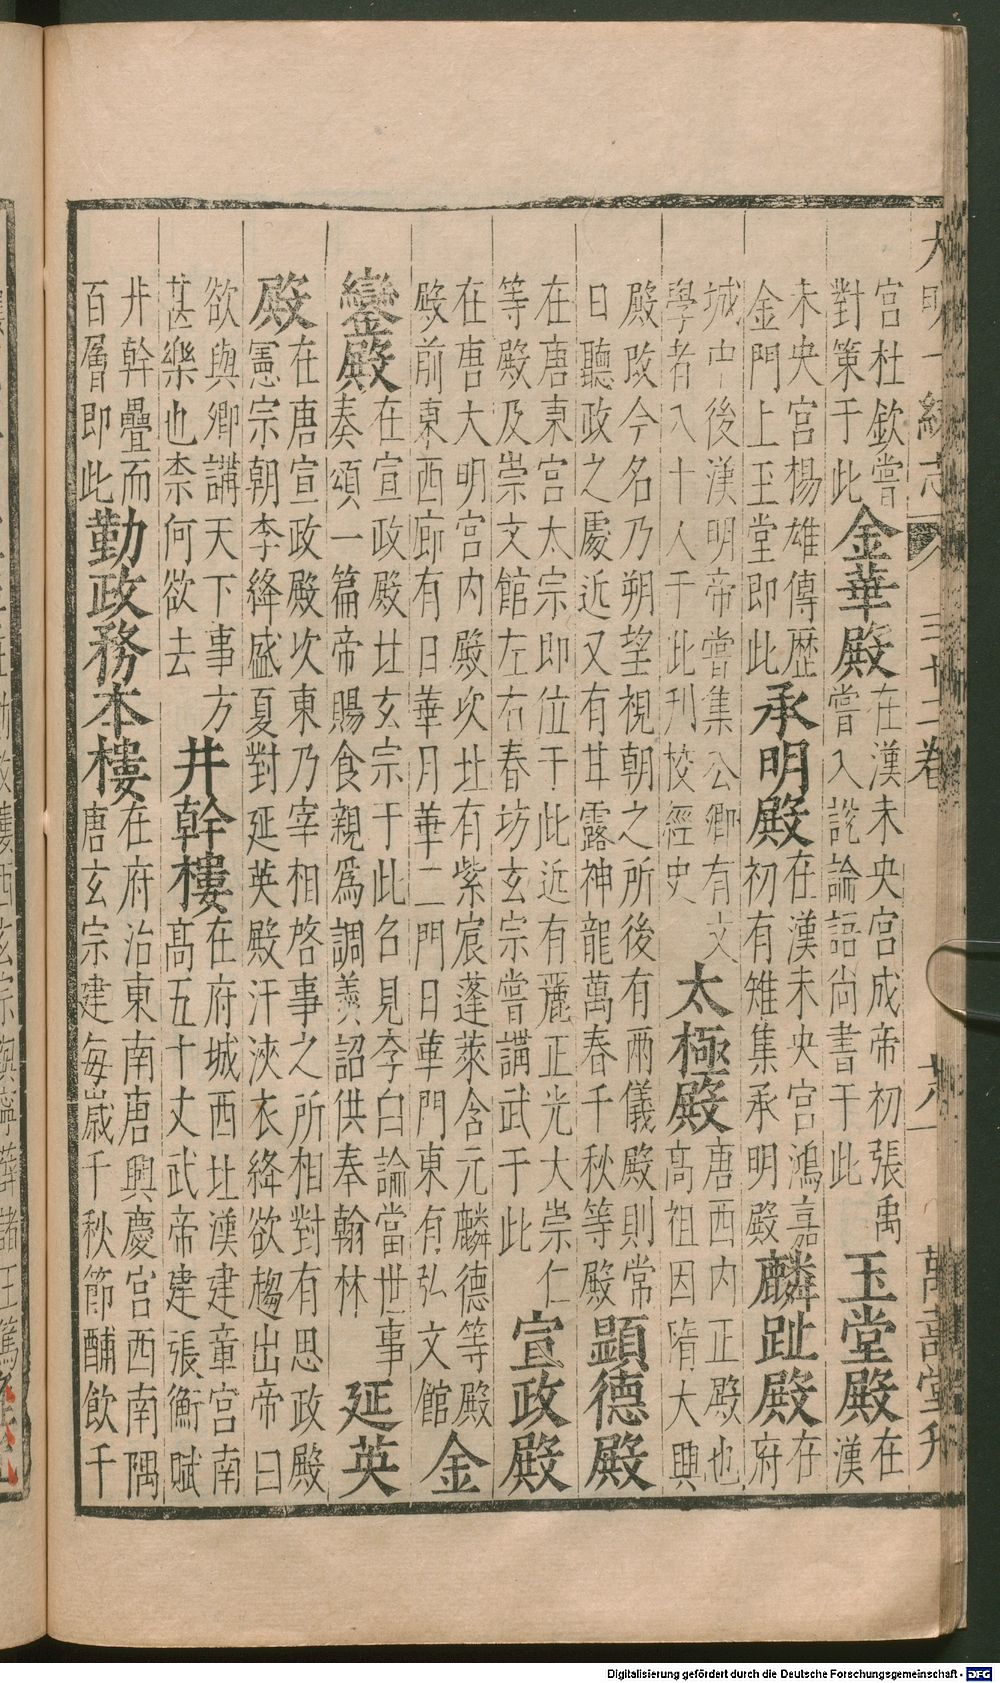 大明一統志 三十二卷 萬壽堂刋
宮杜欽嘗對策于此金華殿在漢未央宮成帝初張禹嘗入說論語尚書于此玉堂殿在漢
未央宮楊雄傳歷金門上玉堂即此承明殿在漢未央宮鴻嘉初有雉集承明殿麟趾殿在府
城中後漢明帝嘗集公卿有文學者八十人于此刋校經史太極殿唐西内正殿也高祖因隋大興
殿改今名乃朔望視朝之所後有兩儀殿則常日聽政之處近又有甘露神龍萬春千秋等殿顯德殿
在唐東宮太宗即位于此近有麗正光大崇仁等殿及崇文館左右春坊玄宗嘗講武于此宣政殿
在唐大明宮内殿次北有紫宸蓬萊含元麟德等殿殿前東西廊有日華月華二門日華門東有弘文館金
鑾殿在宣政殿北玄宗于此召見李白論當世事奏頌一篇帝賜食親爲調羮詔供奉翰林延英
殿在唐宣政殿次東乃宰相啓事之所相對有思政殿憲宗朝李絳盛夏對延英殿汗浹衣絳欲趨出帝曰
欲與卿講天下事方甚樂也柰何欲去井幹樓在府城西北漢建章宮南高五十丈武帝建張衡賦
井幹疊而百層即此勤政務本樓在府治東南唐興慶宮西南隅唐玄宗建每歲千秋節酺飲千
Digitalisierung gefördert durch die Deutsche Forschungsgemeinschaft - DFG